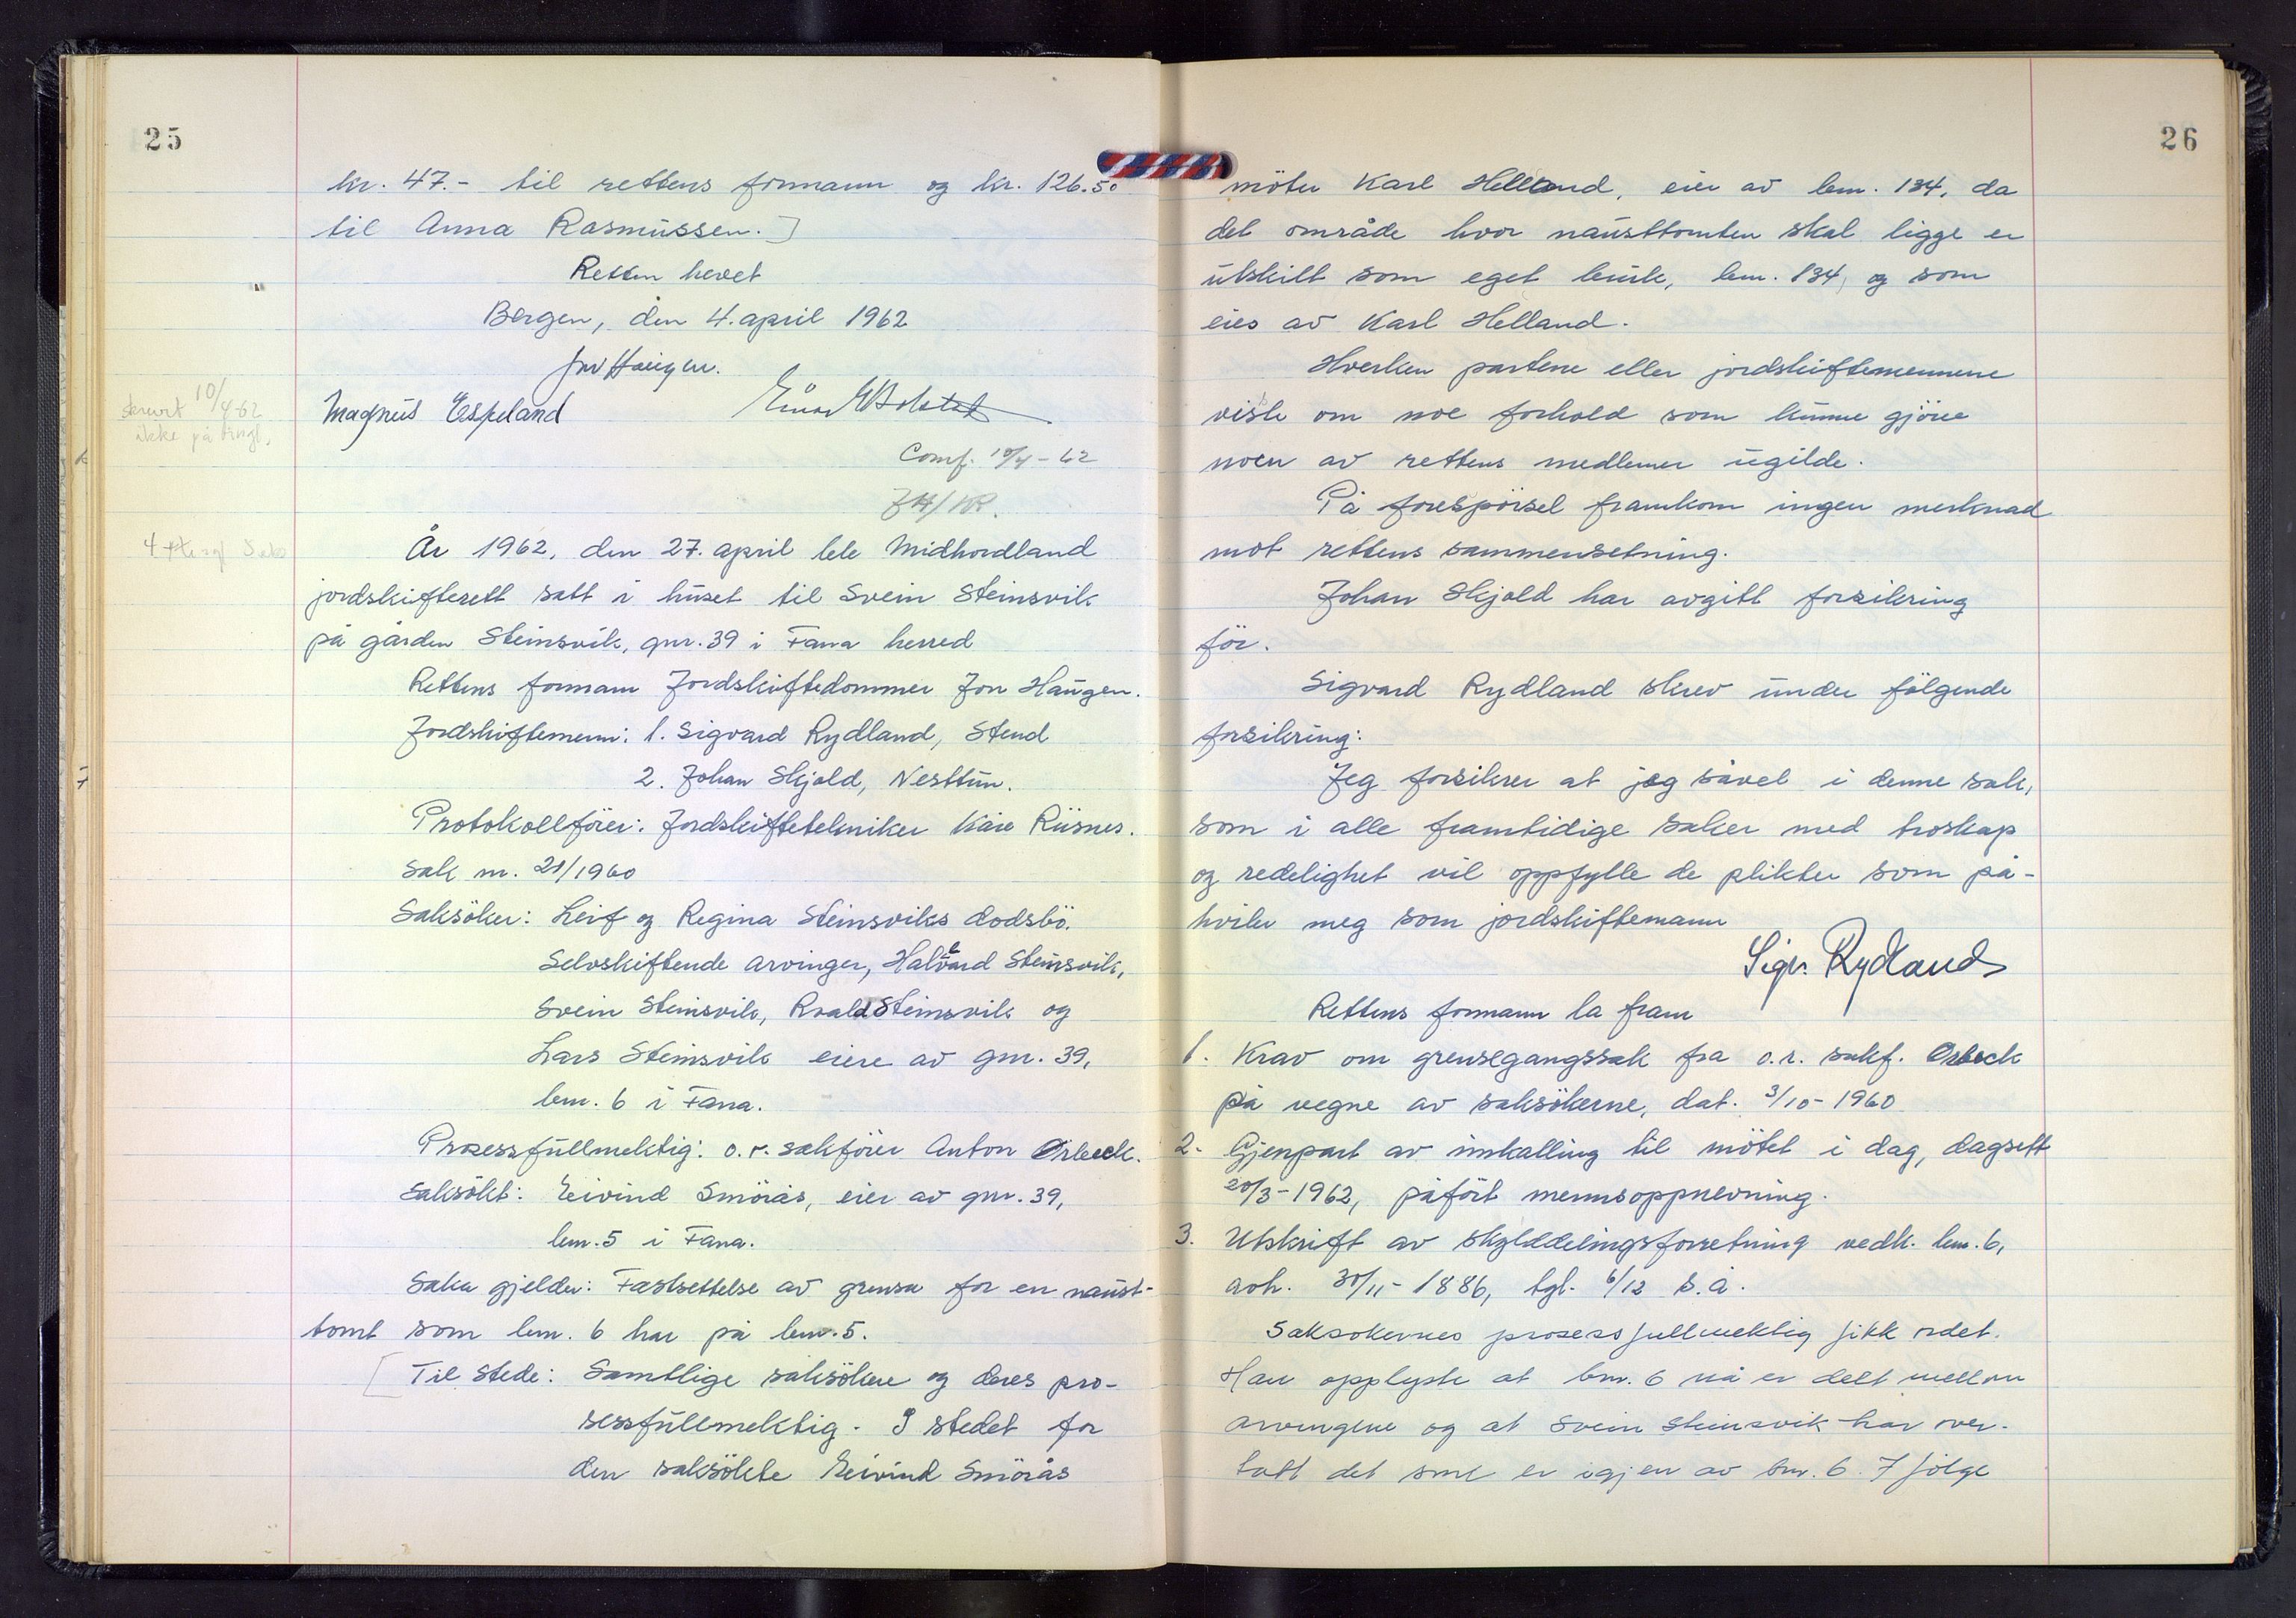 25
kr. 47.- til rettens formann og kr. 126.50
til Anna Rasmussen.]
Retten hevet
Bergen, den 4. april 1962
Jon Haugen.
Magnus Espeland
Comf. 10/4-62
JH/KR.
skrevt 10/4-62
ikke på tingl.
År 1962, den 27. april ble Midhordland
jordskifterett satt i huset til Svein Steinsvik
på garden Steinsvik, gnr. 39 i Fana herred
Rettens formann Jordskiftedommer Jon Haugen.
Jordskiftemenn: 1. Sigvard Rydland, Stend
2. Johan Skjold, Nesttun.
Protokollförer: Jordskiftetekniker Kåre Risnes.
Sak nr. 21/1960
Saksöker: Leif og Regina Steinsviks dödsbö.
Selvskiftende arvinger, Halvard Steinsvik,
Svein Steinsvik, Roald Steinsvik og
Lars Steinsvik eiere av gnr. 39,
bnr. 6 i Fana.
Prosessfullmektig: o.r. sakförer Anton Orbeck.
Saksökt: Eivind Smörås, eier av gnr. 39,
bnr. 5 i Fana.
Saka gjelder: Fastsettelse av grensa for en naust-
tomt som bnr. 6 har på bnr. 5.
[Til stede: Samtlige saksökere og deres pro-
sessfullmektig. I stedet for
den saksökte Eivind Smörås
26
möter Karl Helland, eier av bnr. 134, da
det område hvor nausttomten skal ligge er
utskilt som eget bruk, bnr. 134, og som
eies av Karl Helland.
Hverken partene eller jordskiftemennene
visste om noe forhold som kunne gjöre
noen av rettens medlemer ugilde.
På forespörsel framkom ingen merknad
mot rettens sammensetning.
Johan Skjold har avgitt forsikring
för.
Sigvard Rydland skrev under fölgende
forsikring:
Jeg forsikrer at jeg såvel i denne sak,
som i alle framtidige saker med troskap
og redelighet vil oppfylle de plikter som på-
hviler meg som jordskiftemann
Sigv. Rydland
Rettens formann la fram
1. Krav om grensegangssak fra o.r. sakf. Orbeck
på vegne av saksökerne, dat. 3/10-1960
2. Gjenpart av innkalling til mötet i dag, dagsett
20/3-1962, påfört mennsoppnevning.
3. Utskrift av skylddelingsforretning vedk. bnr. 6,
avh. 30/11-1886, tgl. 6/12 s.å.
Saksökernes prosessfullmektig fikk ordet.
Han opplyste at bnr. 6 nå er delt mellom
arvingene og at Svein Steinsvik har over-
tatt det som er igjen av bnr. 6. I fölge